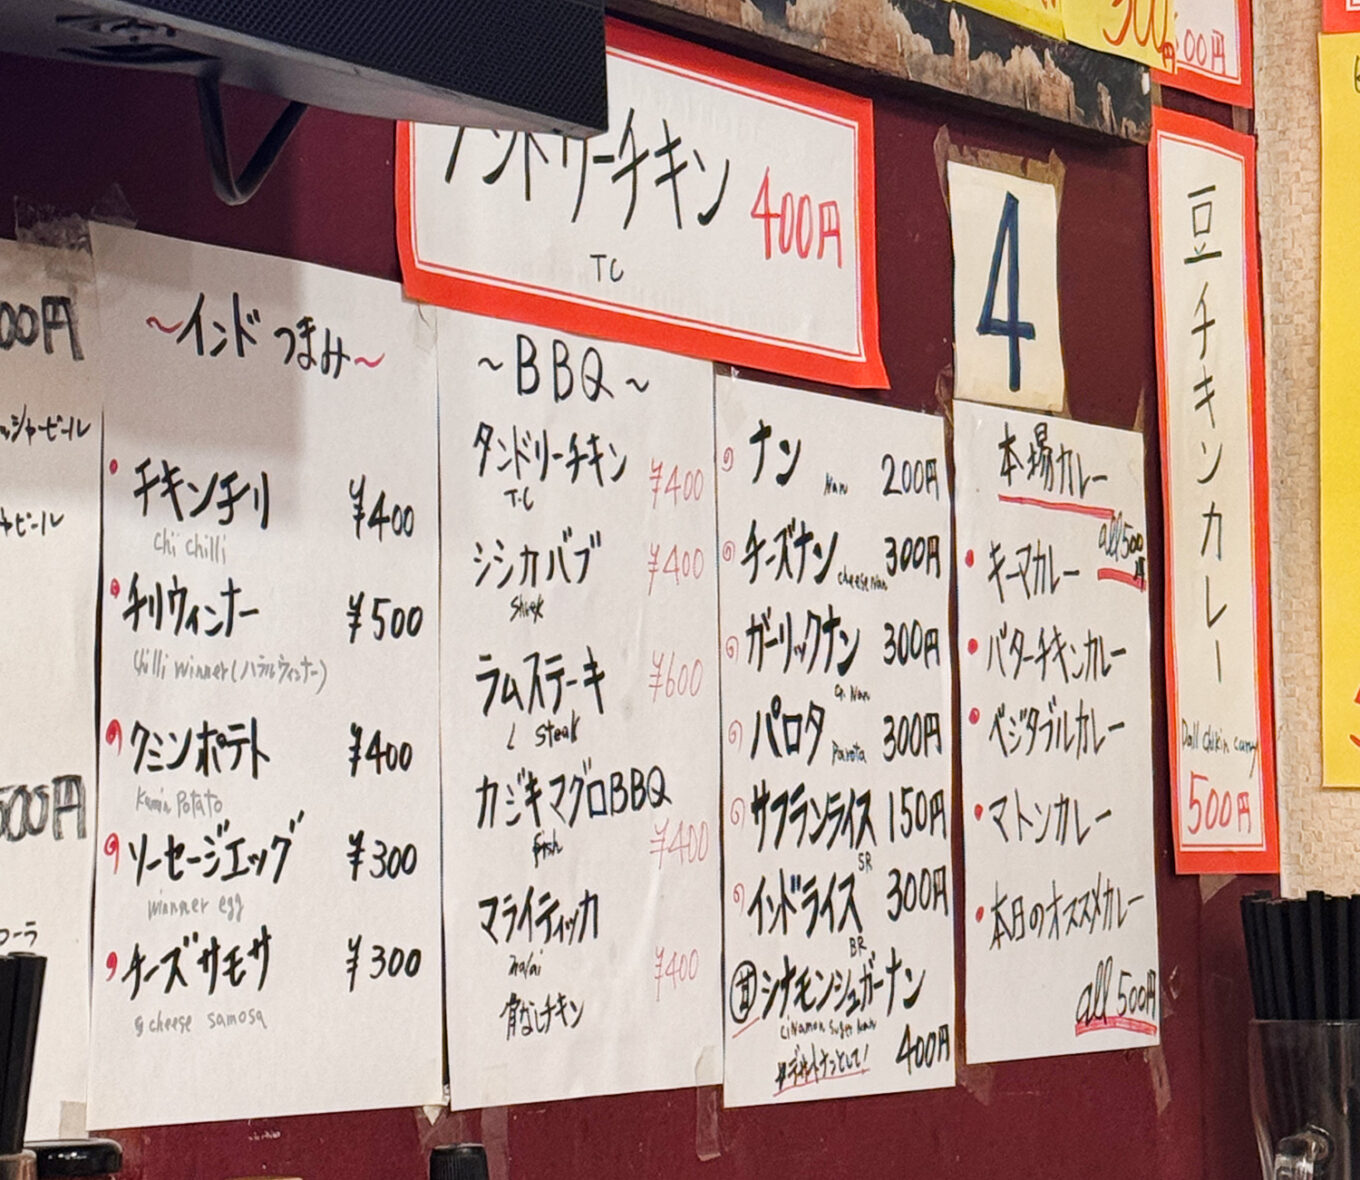 00円
タンドリーチキン 400円
TC
4
豆チキンカレー
Dall chikin curry
500円
00円
ャビール
500円
コーラ
~インドつまみ~
チキンチリ ¥400
chi chilli
チリウィンナー ¥500
chilli winner(ハラルウィンナー)
クミンポテト ¥400
Kumin Potato
ソーセージエッグ ¥300
winner egg
チーズサモサ ¥300
cheese samosa
~BBQ~
タンドリーチキン ¥400
T.C
シシカバブ ¥400
ラムステーキ ¥600
L steak
カジキマグロBBQ
fish ¥400
マライティッカ
malai ¥400
骨なしチキン
ナン Nan 200円
チーズナン cheese Nan 300円
ガーリックナン 300円
G. Nan
パロタ Parota 300円
サフランライス 150円
SR
インドライス 300円
BR
シナモンシュガーナン
cinamon suger nan
デザートナンとして! 400円
本場カレー
all 500円
キーマカレー
バターチキンカレー
ベジタブルカレー
マトンカレー
本日のオススメカレー
all 500円